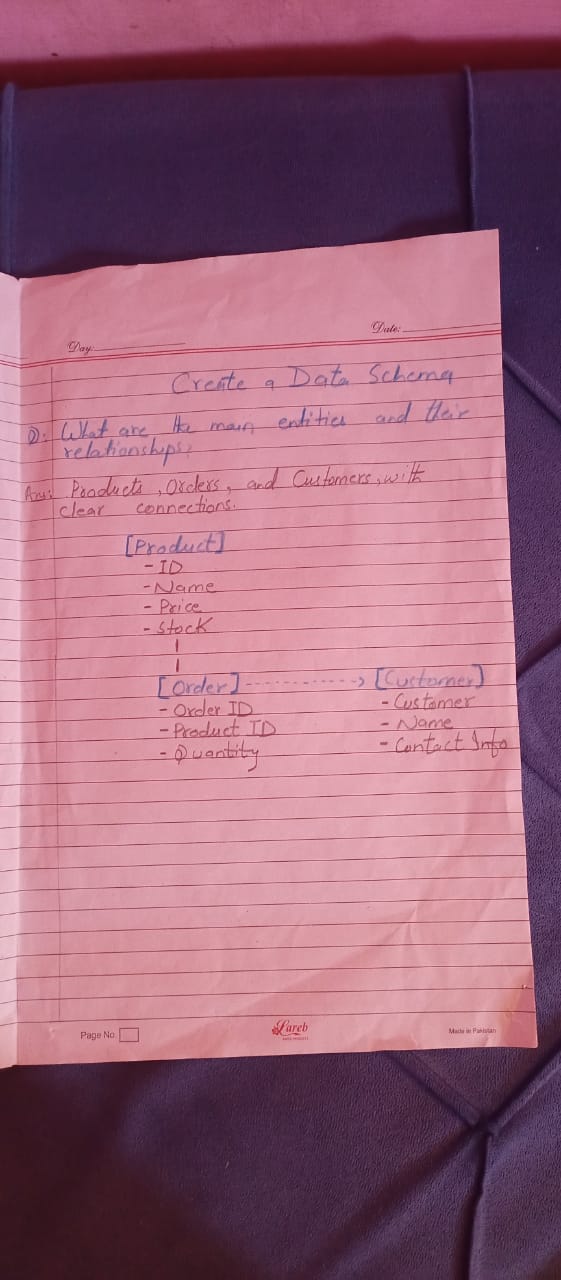 Day:
Date:
Create a Data Schema
Q: What are the main entities and their
relationships?
Ans: Products, Orders, and Customers, with
clear connections.
[Product]
- ID
- Name
- Price
- Stock
[Order] ------------> [Customer]
- Order ID - Customer
- Product ID - Name
- Quantity - Contact Info
Page No.
Lareb
Made in Pakistan